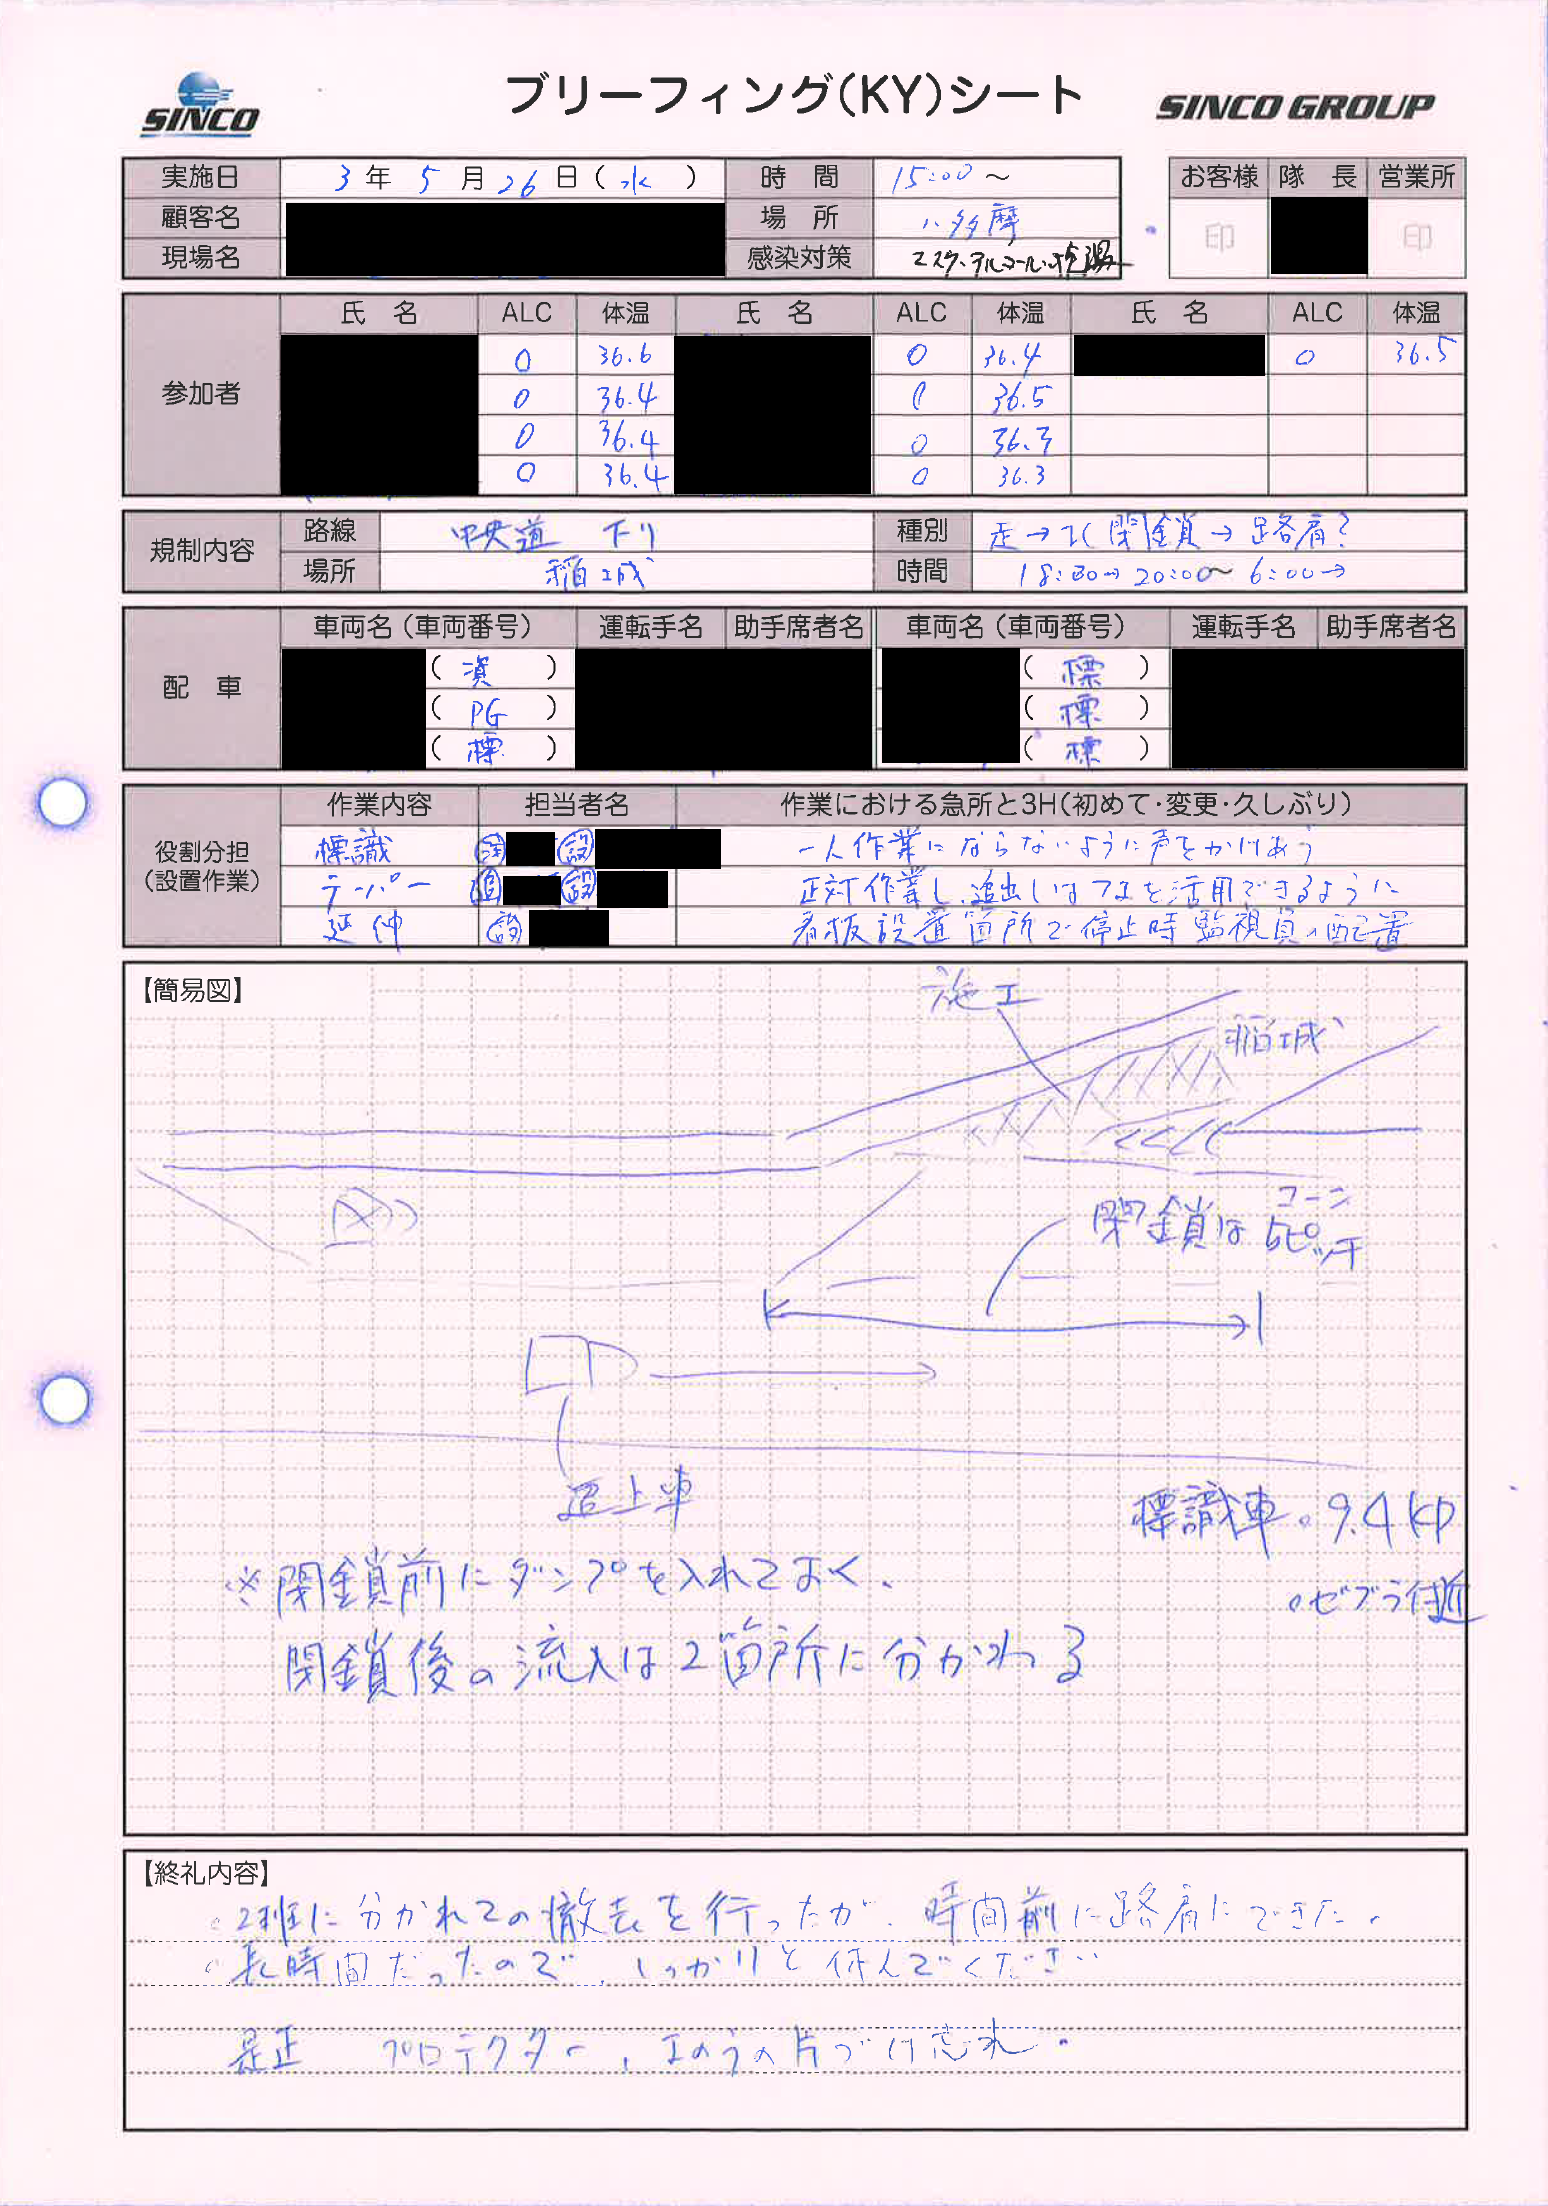 SINCO
ブリーフィング(KY)シート
SINCO GROUP
実施日 3 年 5 月 26 日 ( 水 ) 時 間 15:00 ～
お客様 隊 長 営業所
顧客名 場 所 八多摩
印 印
現場名 感染対策 マスク・アルコール・検温
氏 名 ALC 体温 氏 名 ALC 体温 氏 名 ALC 体温
参加者
0 36.6 0 36.4 0 36.5
0 36.4 0 36.5
0 36.4 0 36.3
0 36.4 0 36.3
規制内容
路線 中央道 下り 種別 走→ 閉鎖→路肩?
場所 稲城 時間 18:30→20:00～6:00→
配 車
車両名(車両番号) 運転手名 助手席者名 車両名(車両番号) 運転手名 助手席者名
( 資 ) ( 標 )
( PG ) ( 標 )
( 標 ) ( 標 )
役割分担
(設置作業)
作業内容 担当者名 作業における急所と3H(初めて・変更・久しぶり)
標識 設 一人作業にならないように声をかけあう
テーパー 追 設 正対作業し、追出しはフエを活用できるように
延伸 設 看板設置箇所で停止時監視員の配置
【簡易図】
施工
稲城
閉鎖はコーン
5ピッチ
追上車
標識車 。9.4KP
。ゼブラ付近
※閉鎖前にダンプを入れておく、
閉鎖後の流入は2箇所に分かれる
【終礼内容】
。2班に分かれての撤去を行ったが、時間前に路肩にできた。
。長時間だったので、しっかりと休んでください
是正 プロテクター、エのうの片づけ忘れ。